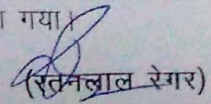 गया।
(रतनलाल रेगर)